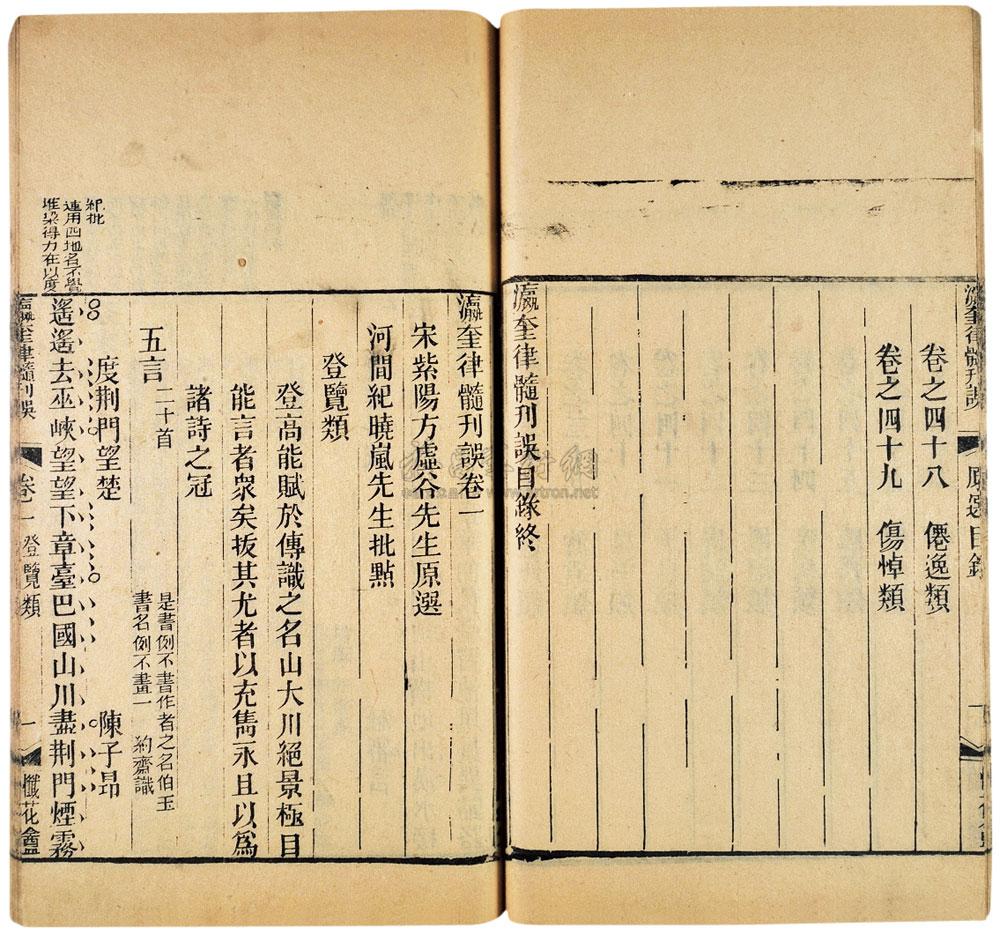 瀛奎律髓刊誤 原選目錄
卷之四十八 僊逸類
卷之四十九 傷悼類
瀛奎律髓刊誤目錄終
瀛奎律髓刊誤卷一
宋紫陽方虛谷先生原選
河間紀曉嵐先生批點
登覽類
登高能賦於傳識之名山大川絕景極目
能言者衆矣拔其尤者以充雋永且以爲
諸詩之冠
五言 二十首
是書例不書作者之名伯玉
書名例不畫一 約齋識
度荆門望楚 陳子昂
遙遙去巫峽望望下章臺巴國山川盡荆門煙霧
紀批
連用四地名不覺
堆垛得力在以度
瀛奎律髓刊誤 卷一 登覽類 一 懺花盦